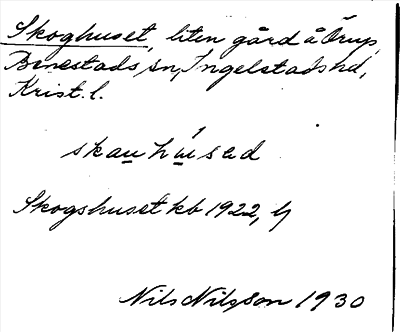 Skoghuset, liten gård å Örup,
Benestads sn, Ingelstads hd,
Krist. l.
skauhúsad
Skogshuset kb 1922,
Nils Nilsson 1930